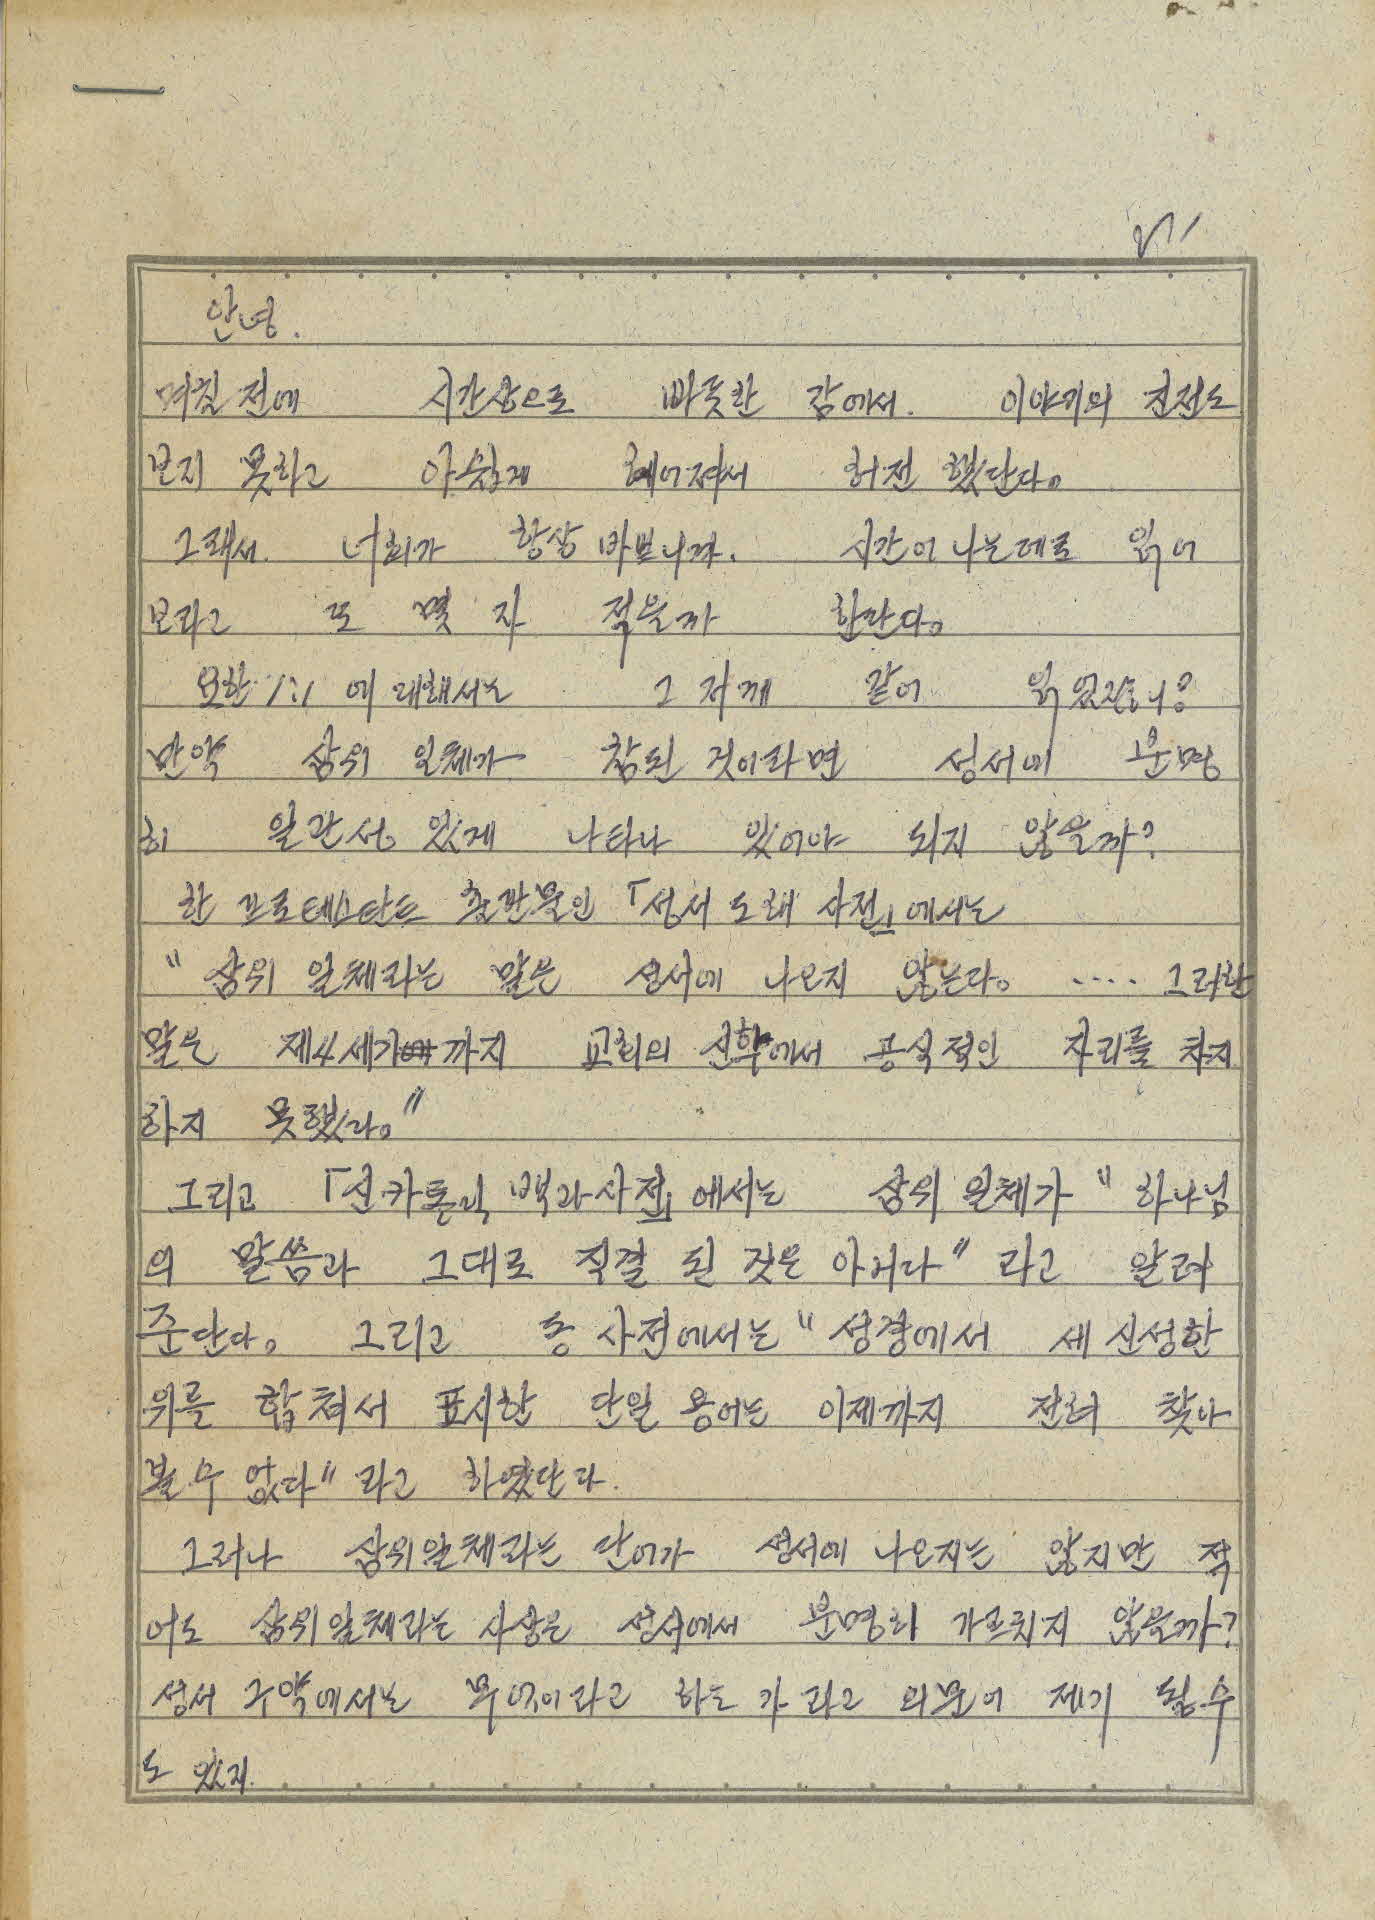 안녕.
며칠 전에 시간상으로 빠듯한 감에서. 이야기의 진전도
보지 못하고 아쉽게 헤어져서 허전 했단다.
그래서. 너희가 항상 바쁘니까. 시간이 나는데로 읽어
보라고 또 몇 자 적을까 한단다.
요한 1:1 에 대해서는 그저께 같이 읽었잖니?
만약 삼위 일체가 참된 것이라면 성서에 분명
히 일관성 있게 나타나 있어야 되지 않을까?
한 프로테스탄트 출판물인 「성서 도해 사전」에서는
"삼위 일체라는 말은 성서에 나오지 않는다. ···· 그러한
말은 제4세기까지 교회의 신학에서 공식적인 자리를 차지
하지 못했다."
그리고 「신카톨릭 백과사전」에서는 삼위 일체가 "하나님
의 말씀과 그대로 직결 된 것은 아니다" 라고 알려
준단다. 그리고 동 사전에서는 "성경에서 세 신성한
위를 합쳐서 표시한 단일 용어는 이제까지 전혀 찾아
볼 수 없다" 라고 하였단다.
그러나 삼위일체라는 단어가 성서에 나오지는 않지만 적
어도 삼위일체라는 사상은 성서에서 분명히 가르치지 않을까?
성서 구약에서는 무엇이라고 하는가 라고 의문이 제기 될 수
도 있지.